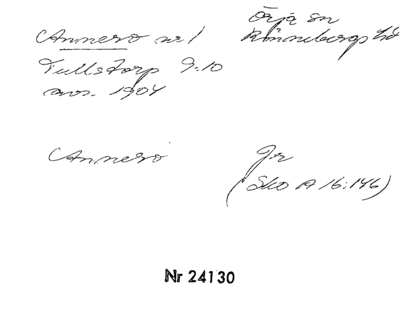 Annero nr 1 Örja sn
Rönnebergs hd
Tullstorp 9:10
avs. 1904
Annero Jr
(Sko A 16:146)
Nr 24130